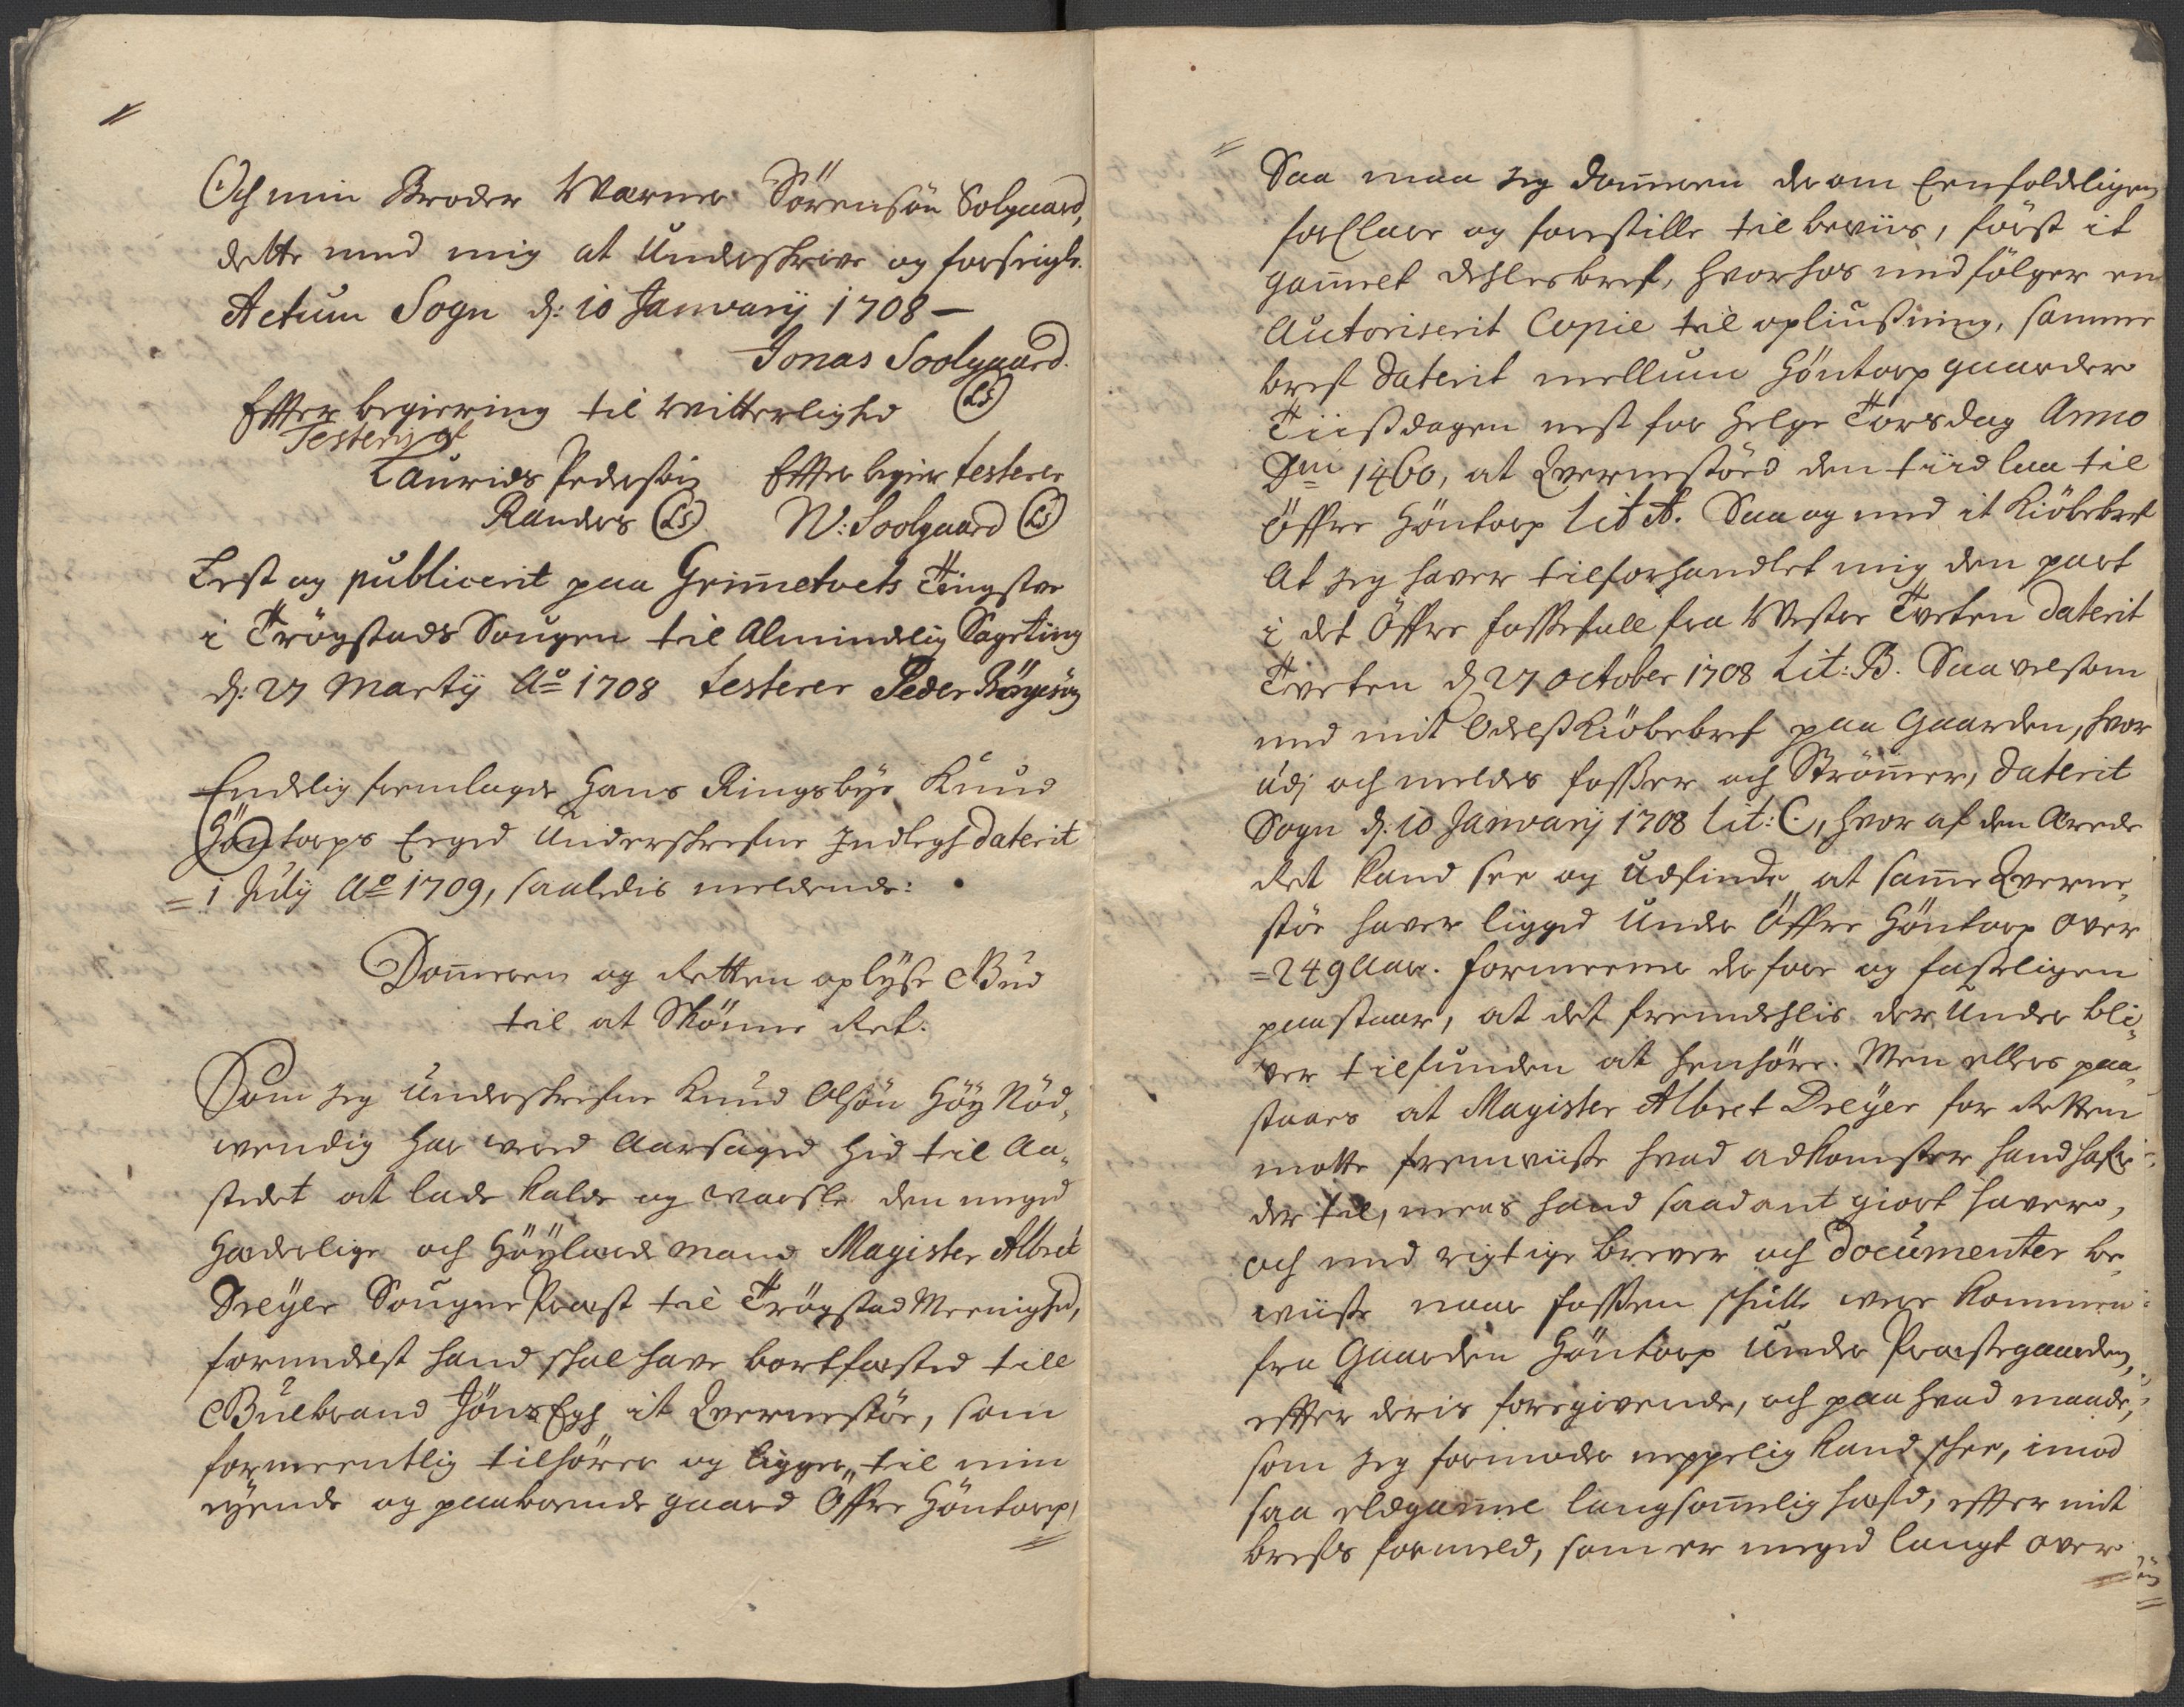 Och min Broder Warner Sörensön Solgaard,
dette med mig at Underskrive og forseigle.
Actum Sogn d: 10 Januarij 1708 –
Jonas Soolgaard.
Effter begiering til Witterlighed (LS)
Testeris af
Laurids Pedersön Effter begier testerer
Randers (LS) W: Soolgaard (LS)
Lest og publicerit paa Grim̄etvets Tingstue
i Trögstads Sougen til Almindelig Sageting
d: 27 Martij Aō 1708 testerer Peder Börgesön
Endelig fremlagde Hans Ringsbye Knud
Höntorps Eeged Underskrefne Indlegh daterit
= 1 Julij Aō 1709, saaledis meldende:
Dom̄eren og Retten oplyse Gud
til at Skiönne Ret.
Som jeg Underskrefne Knud Olsön Höy Nöd„
wendig har wered Aarsaged hid til Aa„
stedet at lade kalde og warsle den meged
Hæderlige och Höylærde Mand Magister Albret
Dreyer Sougne Præst til Trögstad Meenighed,
formedelst hand skal have bortfæsted till
Gulbrand Jöns Egh it Qvernestöe, som
formeentlig tilhörer og ligger„ til min
eyende og paaboende gaard Öffre Höntorp,
Saa maa jeg Dom̄eren derom Eenfoldeligen
forklare og forestille til beviis, först it
gam̄elt dehlesbref, hvorhos medfölger en
Autoriserit Copie til opliusning, samme
bref daterit mellum Höntorp gaarder
Tiisdagen nest for Helge Torsdag Anno
Dni 1460, at Qvernestöed den tiid laa til
Öffre Höntorp Lit A. Saa og med it Kiöbebref
At jeg haver tilforhandlet mig den part
i det Öffre fossefall fra Wester Tveten daterit
Tveten d 27 october 1708 Lit: B. Saavelsom
med mit Odels Kiöbebref paa Gaarden, hvor
udj och meldes fosser och Ström̄er, daterit
Sogn d: 10 Januarij 1708 Lit: C, hvor af den Ærede
Ret kand see og udfinde„ at sam̄e Qverne„
stöe haver ligged Under Öffre Höntorp over
= 249 Aar. formeener derfore og fasteligen
paastaar, at det fremdehlis der Under bli„
ver tilfunden at henhöre. Men ellers paa„
staaes at Magister Albret Dreyer for Retten
motte fremviise hvad adkomster hand hafr
der til, mens hand saadant giort haver,
och med rigtige brever och documenter be„
wiise naar fossen skulle were kommen
fra Gaarden Höntorp Under Præstegaarden,
effter deris foregivende, och paa hvad maade,
som jeg formoder neppelig kand skee, imod
saa eldgam̄el langsom̄elig hæfd, effter mit
brefs formeld, som er meged langt over